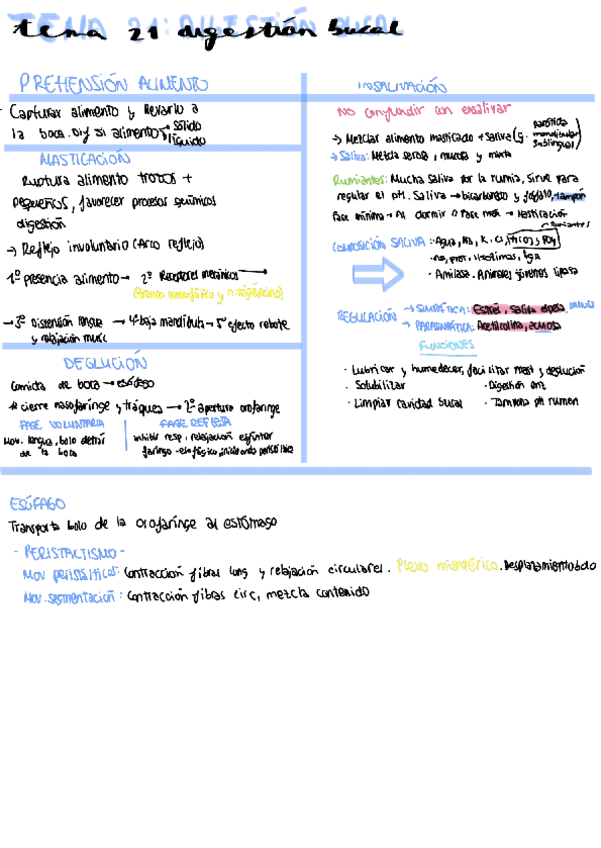 TEMA 21: DIGESTIÓN BUCAL
tema 21 digestión bucal
PREHENSIÓN ALIMENTO
Capturar alimento y llevarlo a
la boca. Dif si alimento → sólido
líquido
MASTICACIÓN
Ruptura alimento trozos +
pequeños, favorecer procesos químicos
digestión
→ Reflejo involuntario (Arco reflejo)
1º presencia alimento → 2º Receptores mecánicos →
(tronco encefálico y n. trigémino)
→ 3º Distensión lengua → 4º baja mandíbula → 5º efecto rebote
y relajación musc
DEGLUCIÓN
Comida de boca → esófago
* cierre nasofaringe y tráquea → 2º apertura orofaringe
FASE VOLUNTARIA
Mov. lengua, bolo detrás
de la boca
FASE REFLEJA
inhibir resp, relajación esfínter
faringo-esofágico, iniciando peristaltismo
INSALIVACIÓN
No confundir con ensalivar
→ Mezclar alimento masticado + saliva (g. parótida
mandibular
sublingual)
→ Saliva: Mezcla serosa, mucosa y mixta
Rumiantes: Mucha saliva por la rumia, sirve para
regular el pH. Saliva → bicarbonato y fosfato, tampón
Fase mínima → Al dormir // Fase max → Masticación
rumiantes
COMPOSICIÓN SALIVA: · Agua, Na, K, Cl, HCO3 y PO4
· Lisozimas, IgA
· Amilasa. Animales jóvenes lipasa
REGULACIÓN → SIMPÁTICA: Estrés, saliva espesa
→ PARASIMPÁTICA: Acetilcolina, acuosa
FUNCIONES
· Lubricar y humedecer, facilitar mast y deglución
· Solubilizar · Digestión enz
· Limpiar cavidad bucal · Tampona pH rumen
ESÓFAGO
Transporta bolo de la orofaringe al estómago
- PERISTALTISMO -
Mov peristálticos: Contracción fibras long y relajación circulares. Plexo mientérico. Desplazamiento bolo
Mov. segmentación: Contracción fibras circ, mezcla contenido